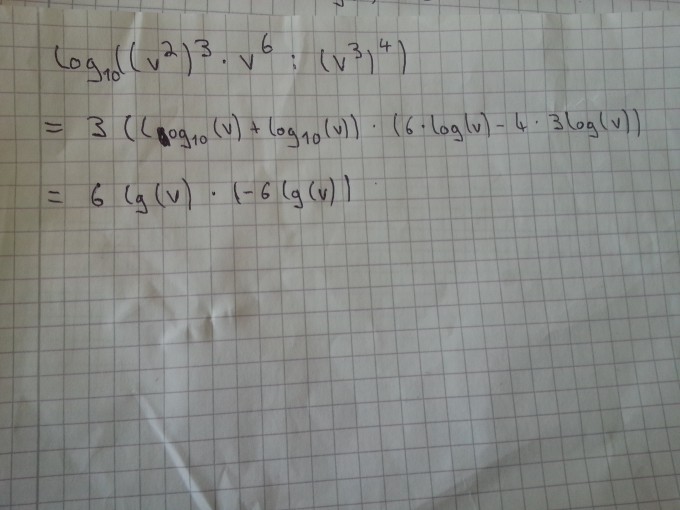 log₁₀((v²)³ · v⁶ : (v³)⁴)
= 3 ((log₁₀(v) + log₁₀(v)) · (6 · log(v) - 4 · 3 log(v))
= 6 lg(v) · (-6 lg(v))